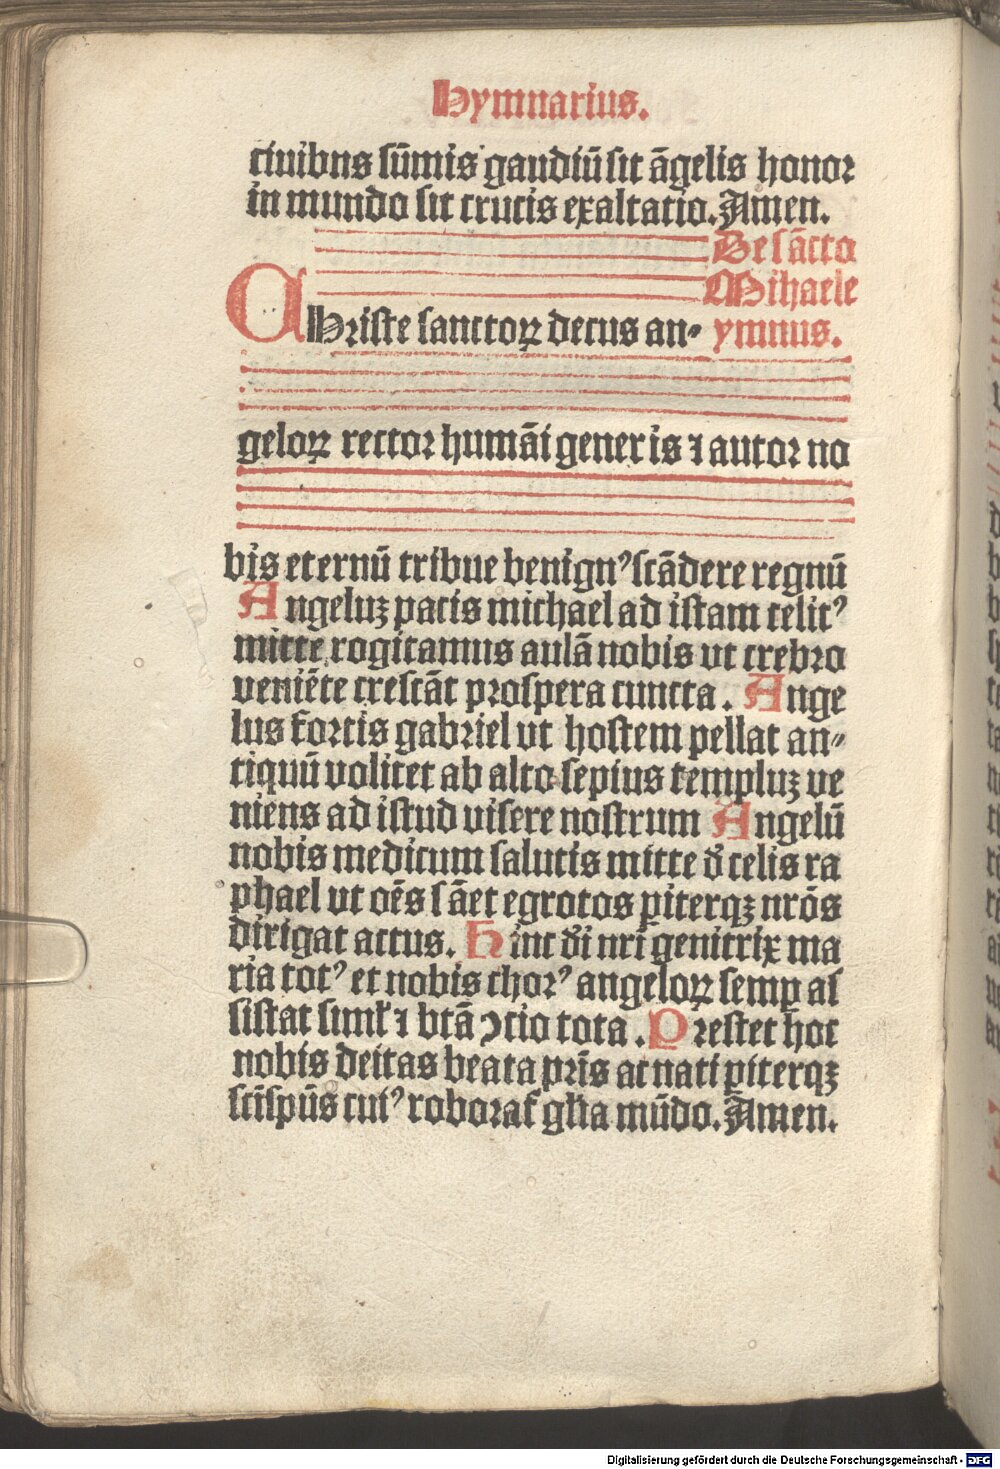 Hymnarius.
ciuibus sūmis gaudiū sit āgelis honor
in mundo sit crucis exaltatio. Amen.
De sācto
Mihaele
CHriste sanctoꝝ decus an⸗ ymnus.
geloꝝ rector humāi generis ⁊ autor no
bis eternū tribue benignꝰ scādere regnū
Angeluꝫ pacis michael ad istam celitꝰ
mitte rogitamus aulā nobis vt crebro
veniēte crescāt prospera cuncta. Ange
lus fortis gabriel vt hostem pellat an⸗
tiquū volitet ab alto sepius templuꝫ ve
niens ad istud visere nostrum Angelū
nobis medicum salutis mitte d̄ celis ra
phael vt oēs sāet egrotos ꝑiterqꝫ nrōs
dirigat actus. Hinc d̄i nr̄i genitrix ma
ria totꝰ et nobis chorꝰ angeloꝝ semꝑ as
sistat siml̄ ⁊ btā ꝯcio tota. Prestet hoc
nobis deitas beata prīs ac nati ꝑiterqꝫ
scīspūs cuiꝰ roborat̄ glīa mūdo. Amen.
Digitalisierung gefördert durch die Deutsche Forschungsgemeinschaft - DFG